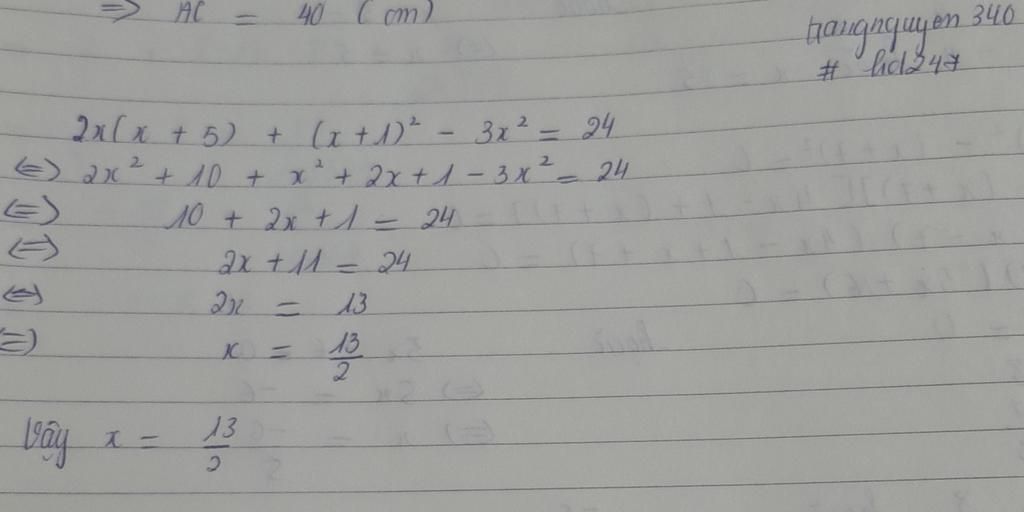 => AC = 40 (cm)
trangnguyen 340
# hd247
2x(x + 5) + (x + 1)² - 3x² = 24
<=> 2x² + 10 + x² + 2x + 1 - 3x² = 24
<=> 10 + 2x + 1 = 24
<=> 2x + 11 = 24
<=> 2x = 13
<=> x = 13/2
Vậy x = 13/2